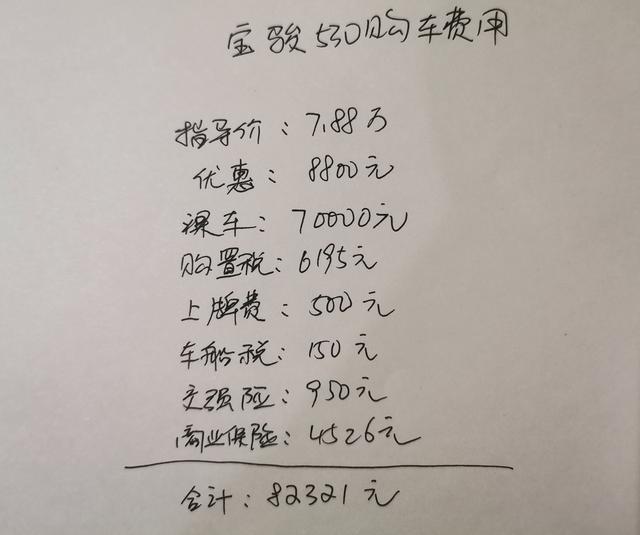 宝骏530购车费用
指导价：7.88万
优惠：8800元
裸车：70000元
购置税：6195元
上牌费：500元
车船税：150元
交强险：950元
商业保险：4526元
合计：82321元